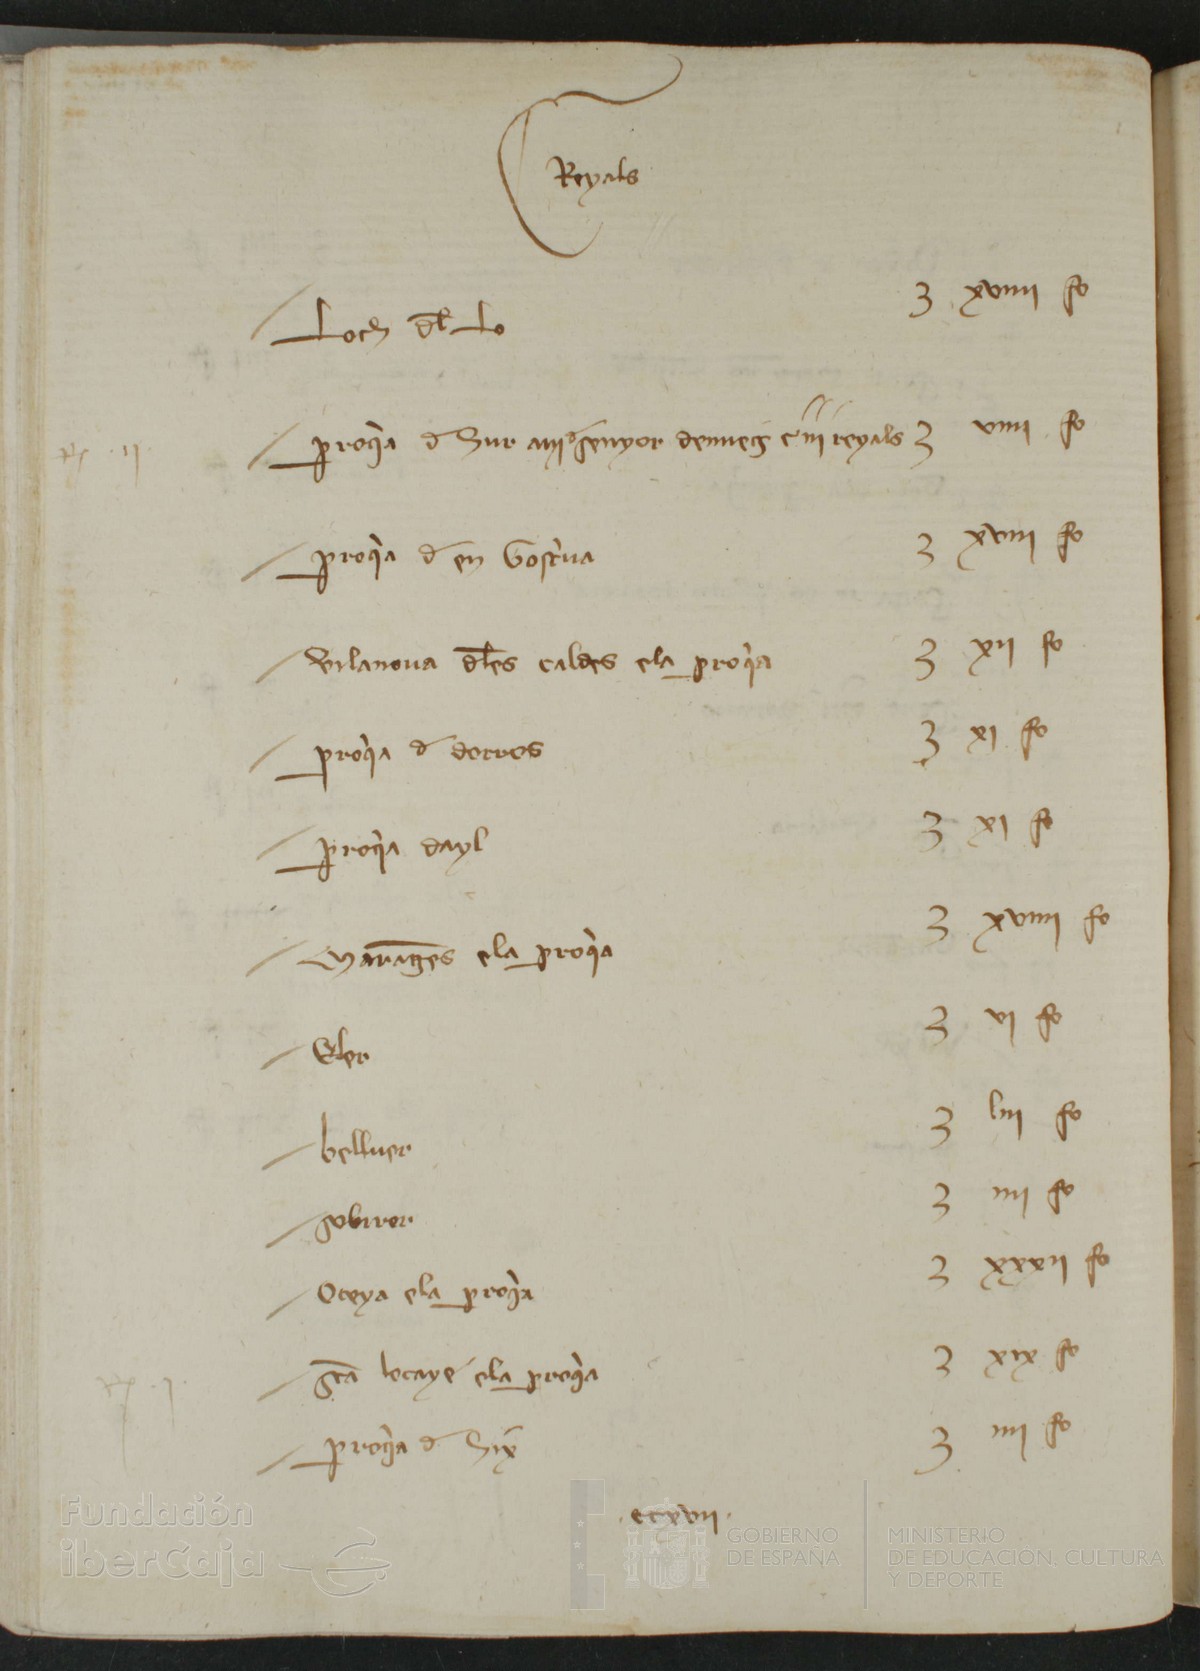 Reyals
Loch del Lo 3 xviiii fo
proqia d Hur ayi senyor denueg e iii reyals 3 viiii fo
proqia d en Gostrua 3 xviii fo
Vilanoua dles caldes ela proqia 3 xii fo
proqia d dorres 3 xi fo
proqia dayl 3 xi fo
Maranges ela proqia 3 xviiii fo
Eler 3 vi fo
bellver 3 liii fo
sobirer 3 iiii fo
Oceya ela proqia 3 xxxii fo
sta locaye ela proqia 3 xix fo
proqia d Hix 3 iiii fo
. ccxvii .
Fundación
iberCaja
GOBIERNO
DE ESPAÑA
MINISTERIO
DE EDUCACIÓN, CULTURA
Y DEPORTE